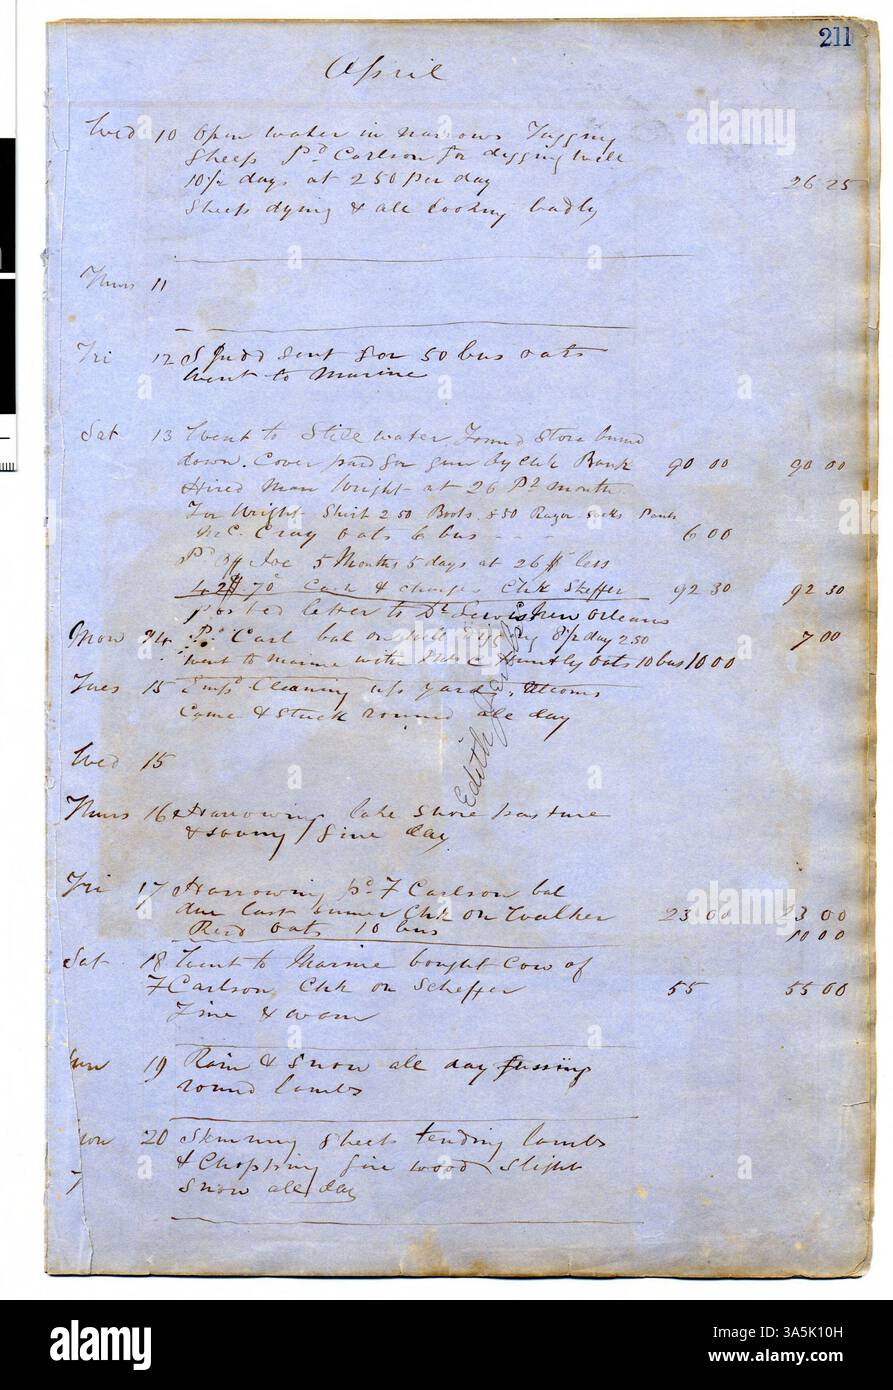 211
April
Wed 10 Open water in narrows Tagging
Sheep Pd Carlson for digging well
10½ days at 2 50 per day 26 25
Sheep dying & all looking badly
Thurs 11
Fri 12 S Judd sent for 50 bus oats
Went to Marine
Sat 13 Went to Still water Found Store burnd
down. Cover paid for gun by Chk Bank 90 00 90 00
Hired Man Wright at 26 Pr month
For Wright Shirt 2 50 Boots 8 50 Razor Socks Pants
Mc. Cray oats 6 bus 6 00
Pd off Joe 5 Months 5 days at 26 $ less
42$ 70c Cash & charges Chk Sheffer 92 30 92 30
posted letter to Dr Lewis New Orleans
Mon 14 Pd Carl bal on well 8½ day 2.50 7 00
went to marine with Huntly oats 10 bus 10 00
Tues 15 Empd Cleaning up yard,
Came & Stuck round all day
Edith
Wed 15
Thurs 16 Harrowing lake shore pasture
& sowing fine day
Fri 17 Harrowing pd F Carlson bal
due last Chk on Walker 23 00 23 00
Recd oats 10 bus 10 00
Sat 18 Went to Marine bought Cow of
F Carlson Chk on Scheffer 55 55 00
Fine & warm
Sun 19 Rain & Snow all day fussing
round lambs
Mon 20 Skinning Sheep tending lambs
& Chopping fire wood Slight
Snow all day
alamy
Image ID: 3A5K10H
www.alamy.com